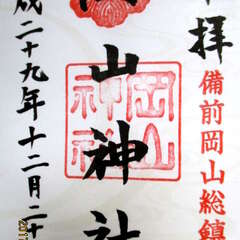 拝
備前岡山総鎮
山神社
岡山神社
成二十九年十二月二十